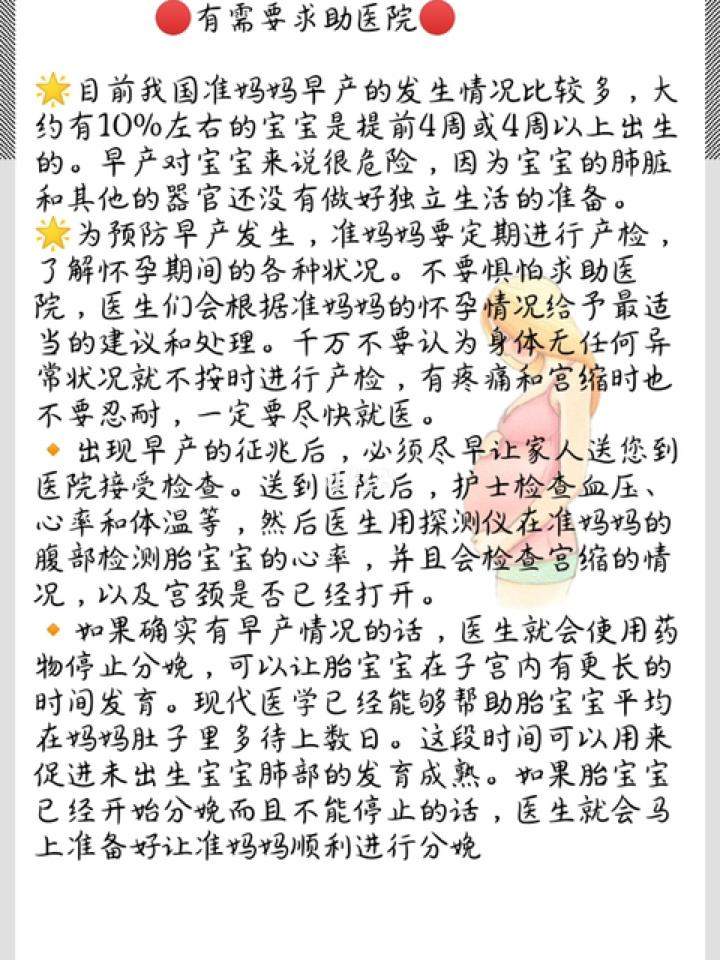 🔴有需要求助医院🔴
🌟目前我国准妈妈早产的发生情况比较多，大
约有10%左右的宝宝是提前4周或4周以上出生
的。早产对宝宝来说很危险，因为宝宝的肺脏
和其他的器官还没有做好独立生活的准备。
🌟为预防早产发生，准妈妈要定期进行产检，
了解怀孕期间的各种状况。不要惧怕求助医
院，医生们会根据准妈妈的怀孕情况给予最适
当的建议和处理。千万不要认为身体无任何异
常状况就不按时进行产检，有疼痛和宫缩时也
不要忍耐，一定要尽快就医。
🔸出现早产的征兆后，必须尽早让家人送您到
医院接受检查。送到医院后，护士检查血压、
心率和体温等，然后医生用探测仪在准妈妈的
腹部检测胎宝宝的心率，并且会检查宫缩的情
况，以及宫颈是否已经打开。
🔸如果确实有早产情况的话，医生就会使用药
物停止分娩，可以让胎宝宝在子宫内有更长的
时间发育。现代医学已经能够帮助胎宝宝平均
在妈妈肚子里多待上数日。这段时间可以用来
促进未出生宝宝肺部的发育成熟。如果胎宝宝
已经开始分娩而且不能停止的话，医生就会马
上准备好让准妈妈顺利进行分娩